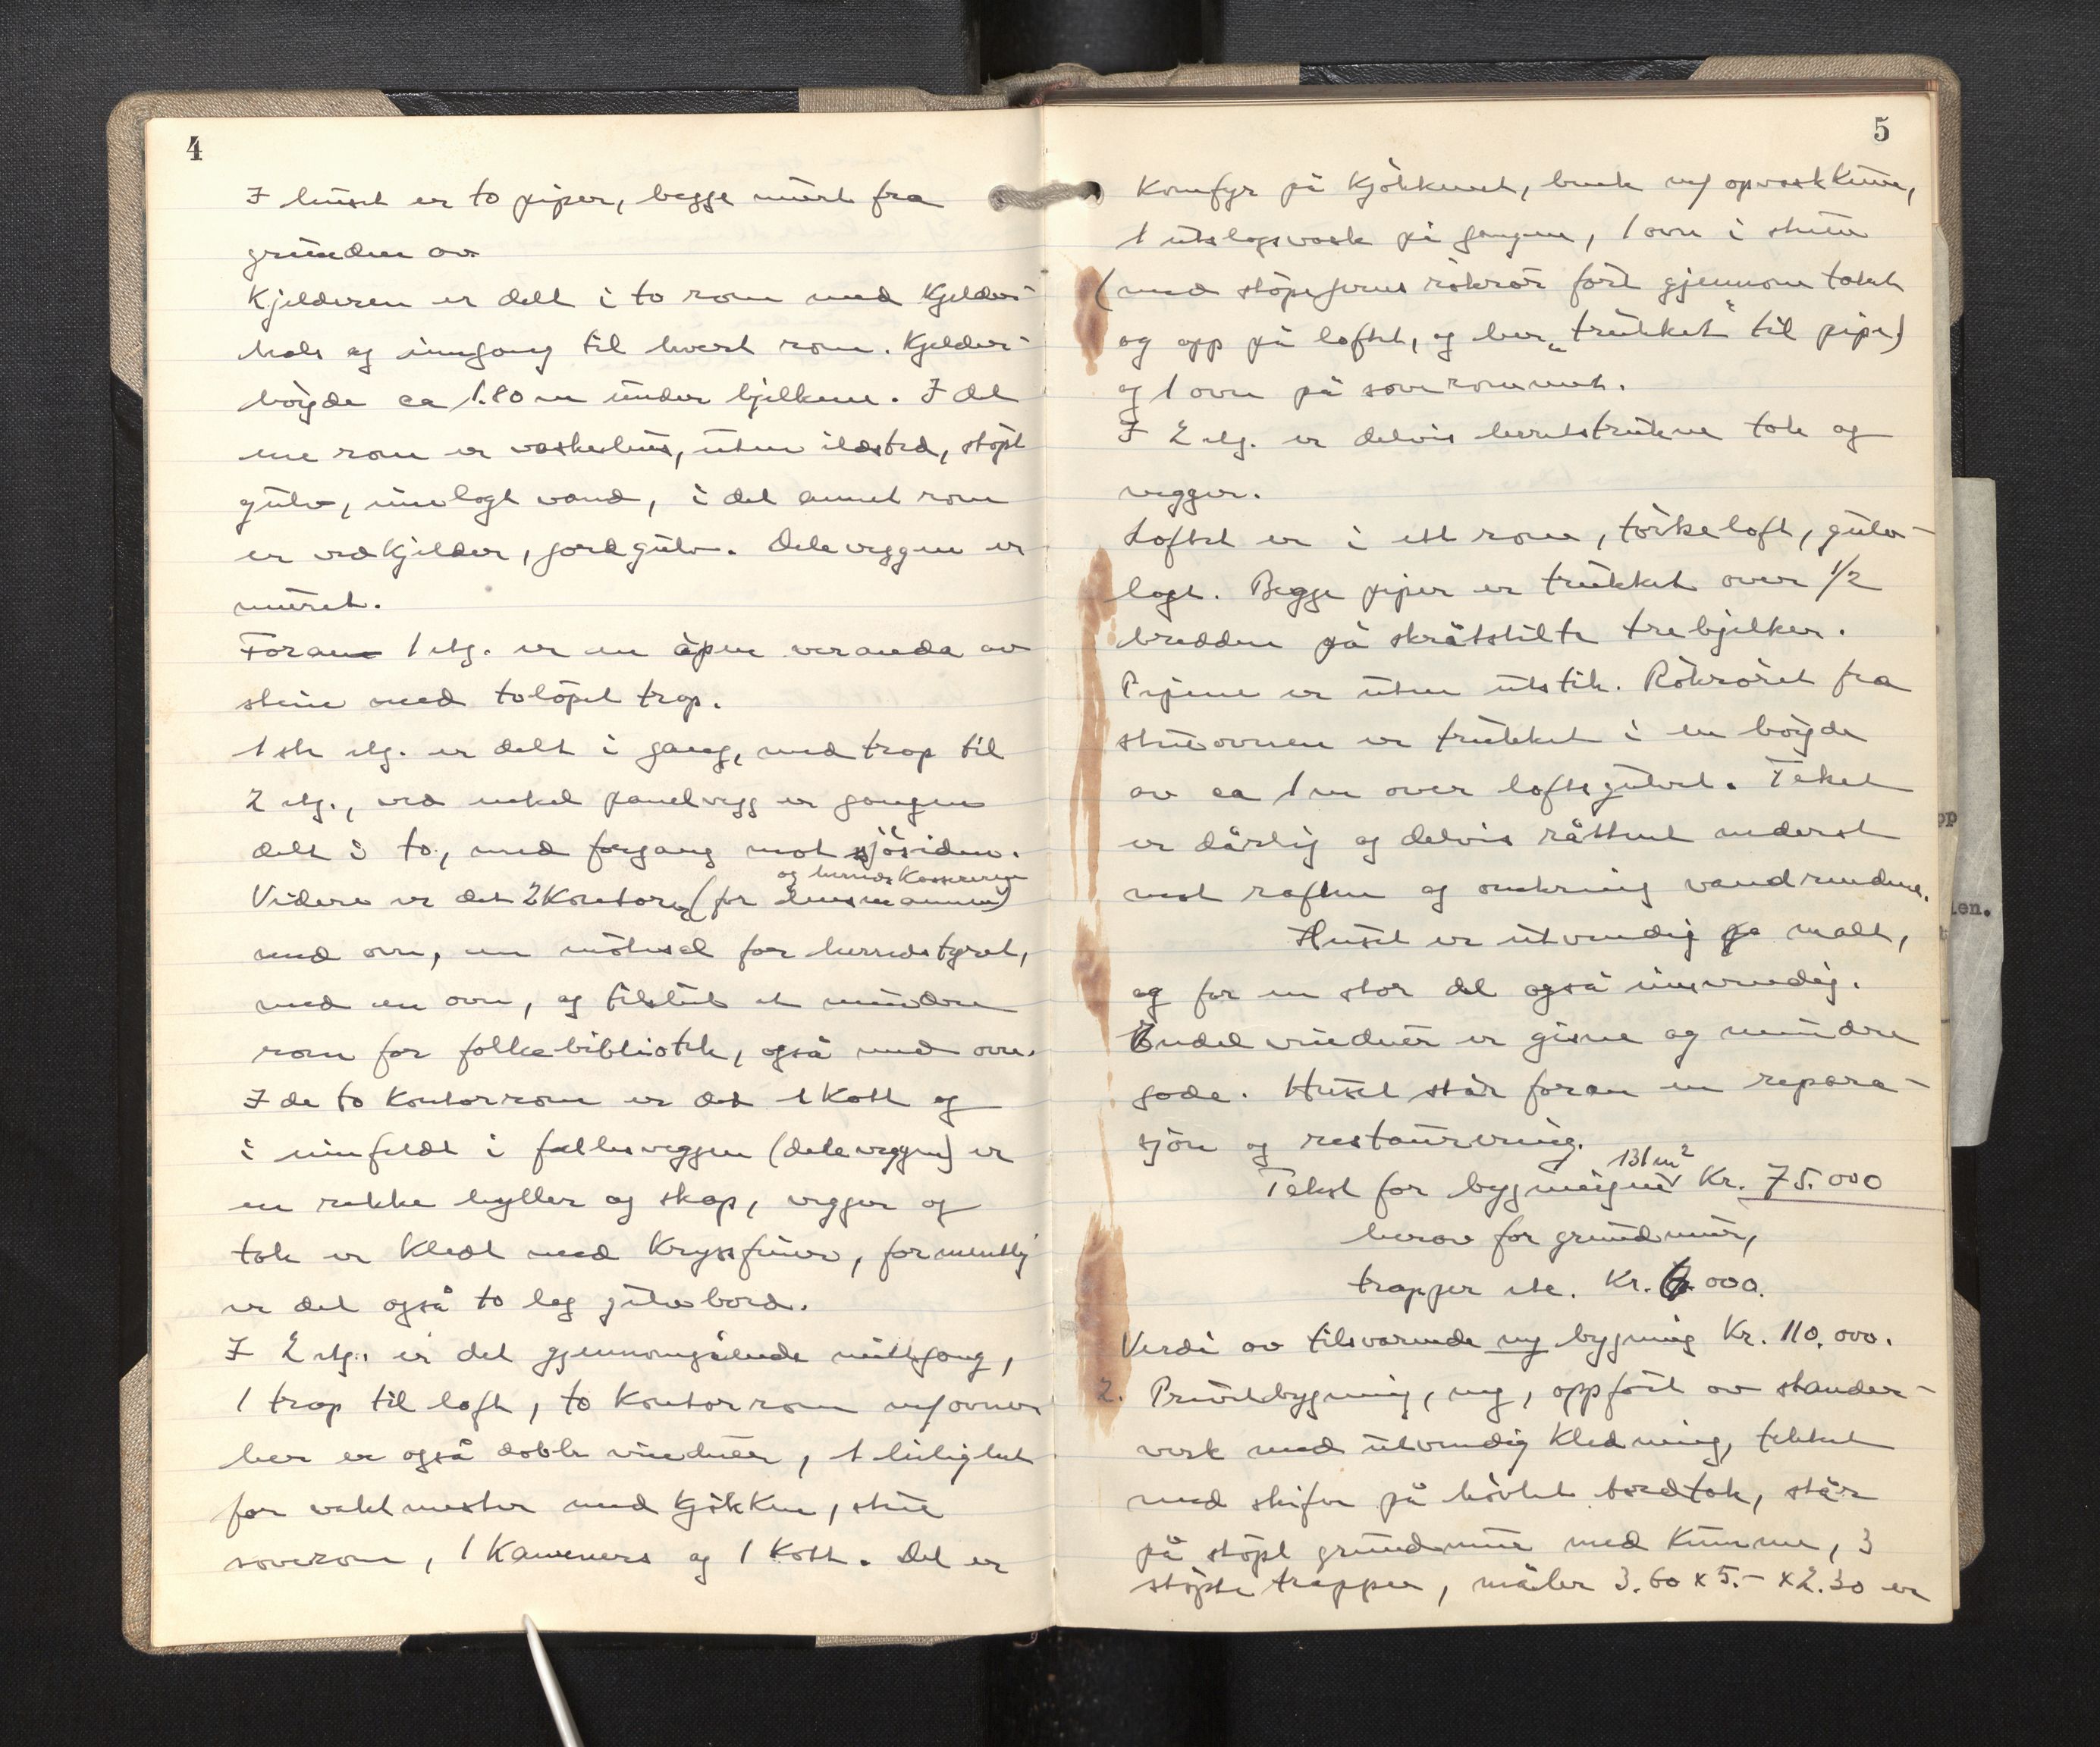 4
I huset er to piper, begge murt fra
grunden av
Kjelderen er delt i to rom med Kjelder-
hals og inngang til hvert rom. Kjelder-
höyde ca 1.80 m under bjelkene. I det
ene rom er vaskehus, uten ildsted, støpt
gulv, innlagt vand, i det annet rom
er vedkjelder, jordgulv. Deleveggen er
muret.
Foran 1 etg. er en åpen veranda av
stein med tolöpet trap.
1ste etg. er delt i gang, med trap til
2 etg., ved enkel panelvegg er gangen
delt i to, med forgang mot sjösiden.
og herredskassereren
Videre er det 2 Kontorer (for lensmannen)
med ovn, en mötesal for herredstyret,
med en ovn, og tilslut et mindre
rom for folkebibliotek, også med ovn.
I de to Kontorrom er det 1 Kott og
i innfeldt i fellesveggen (deleveggen) er
en rekke hyller og skap, vegger og
tak er Kledt med Kryssfiner, formentlig
er det også to lag gulvbord.
I 2 etg. er det gjennomgående midtgang,
1 trap til loft, to Kontorrom m/ovner
her er også doble vinduer, 1 leilighet
for vaktmester med Kjökken, stue
soverom, 1 Kammers og 1 Kott. Det er
5
Komfyr på Kjökkenet, benk m/ opvaskkum,
1 utslagsvask på gangen, 1 ovn i stuen
(med støpejerns rökrör fört gjennom taket
og opp på loftet, og her „trukket" til pipe)
og 1 ovn på soverommet.
I 2 etg. er delvis lerretstrukne tak og
vegger.
Loftet er i ett rom, törkeloft, gulv-
lagt. Begge piper er trukket over 1/2
bredden på skråtstilte trebjelker.
Pipene er uten utstik. Rökröret fra
stueovnen er trukket i en höyde
av ca 1 m over loftsgulvet. Teket
er dårlig og delvis råttent nederst
mot raften og omkring vandrendene.
Huset er utvendig malt,
og for en stor del også innvendig.
Endel vinduer er gisne og mindre
gode. Huset står foran en repara-
sjon og restaurering.
131 m²
Takst for bygningen Kr. 75.000
herav for grundmur,
trapper etc. Kr. 6.000.
Verdi av tilsvarende ny bygning Kr. 110.000.
2. Privetbygning, ny, oppfört av stender-
verk med utvendig Kledning, tekket
med skifer på hövlet bordtak, står
på støpt grundmur med Kumme, 3
støpte trapper, måler 3.60 x 5.- x 2.30 er